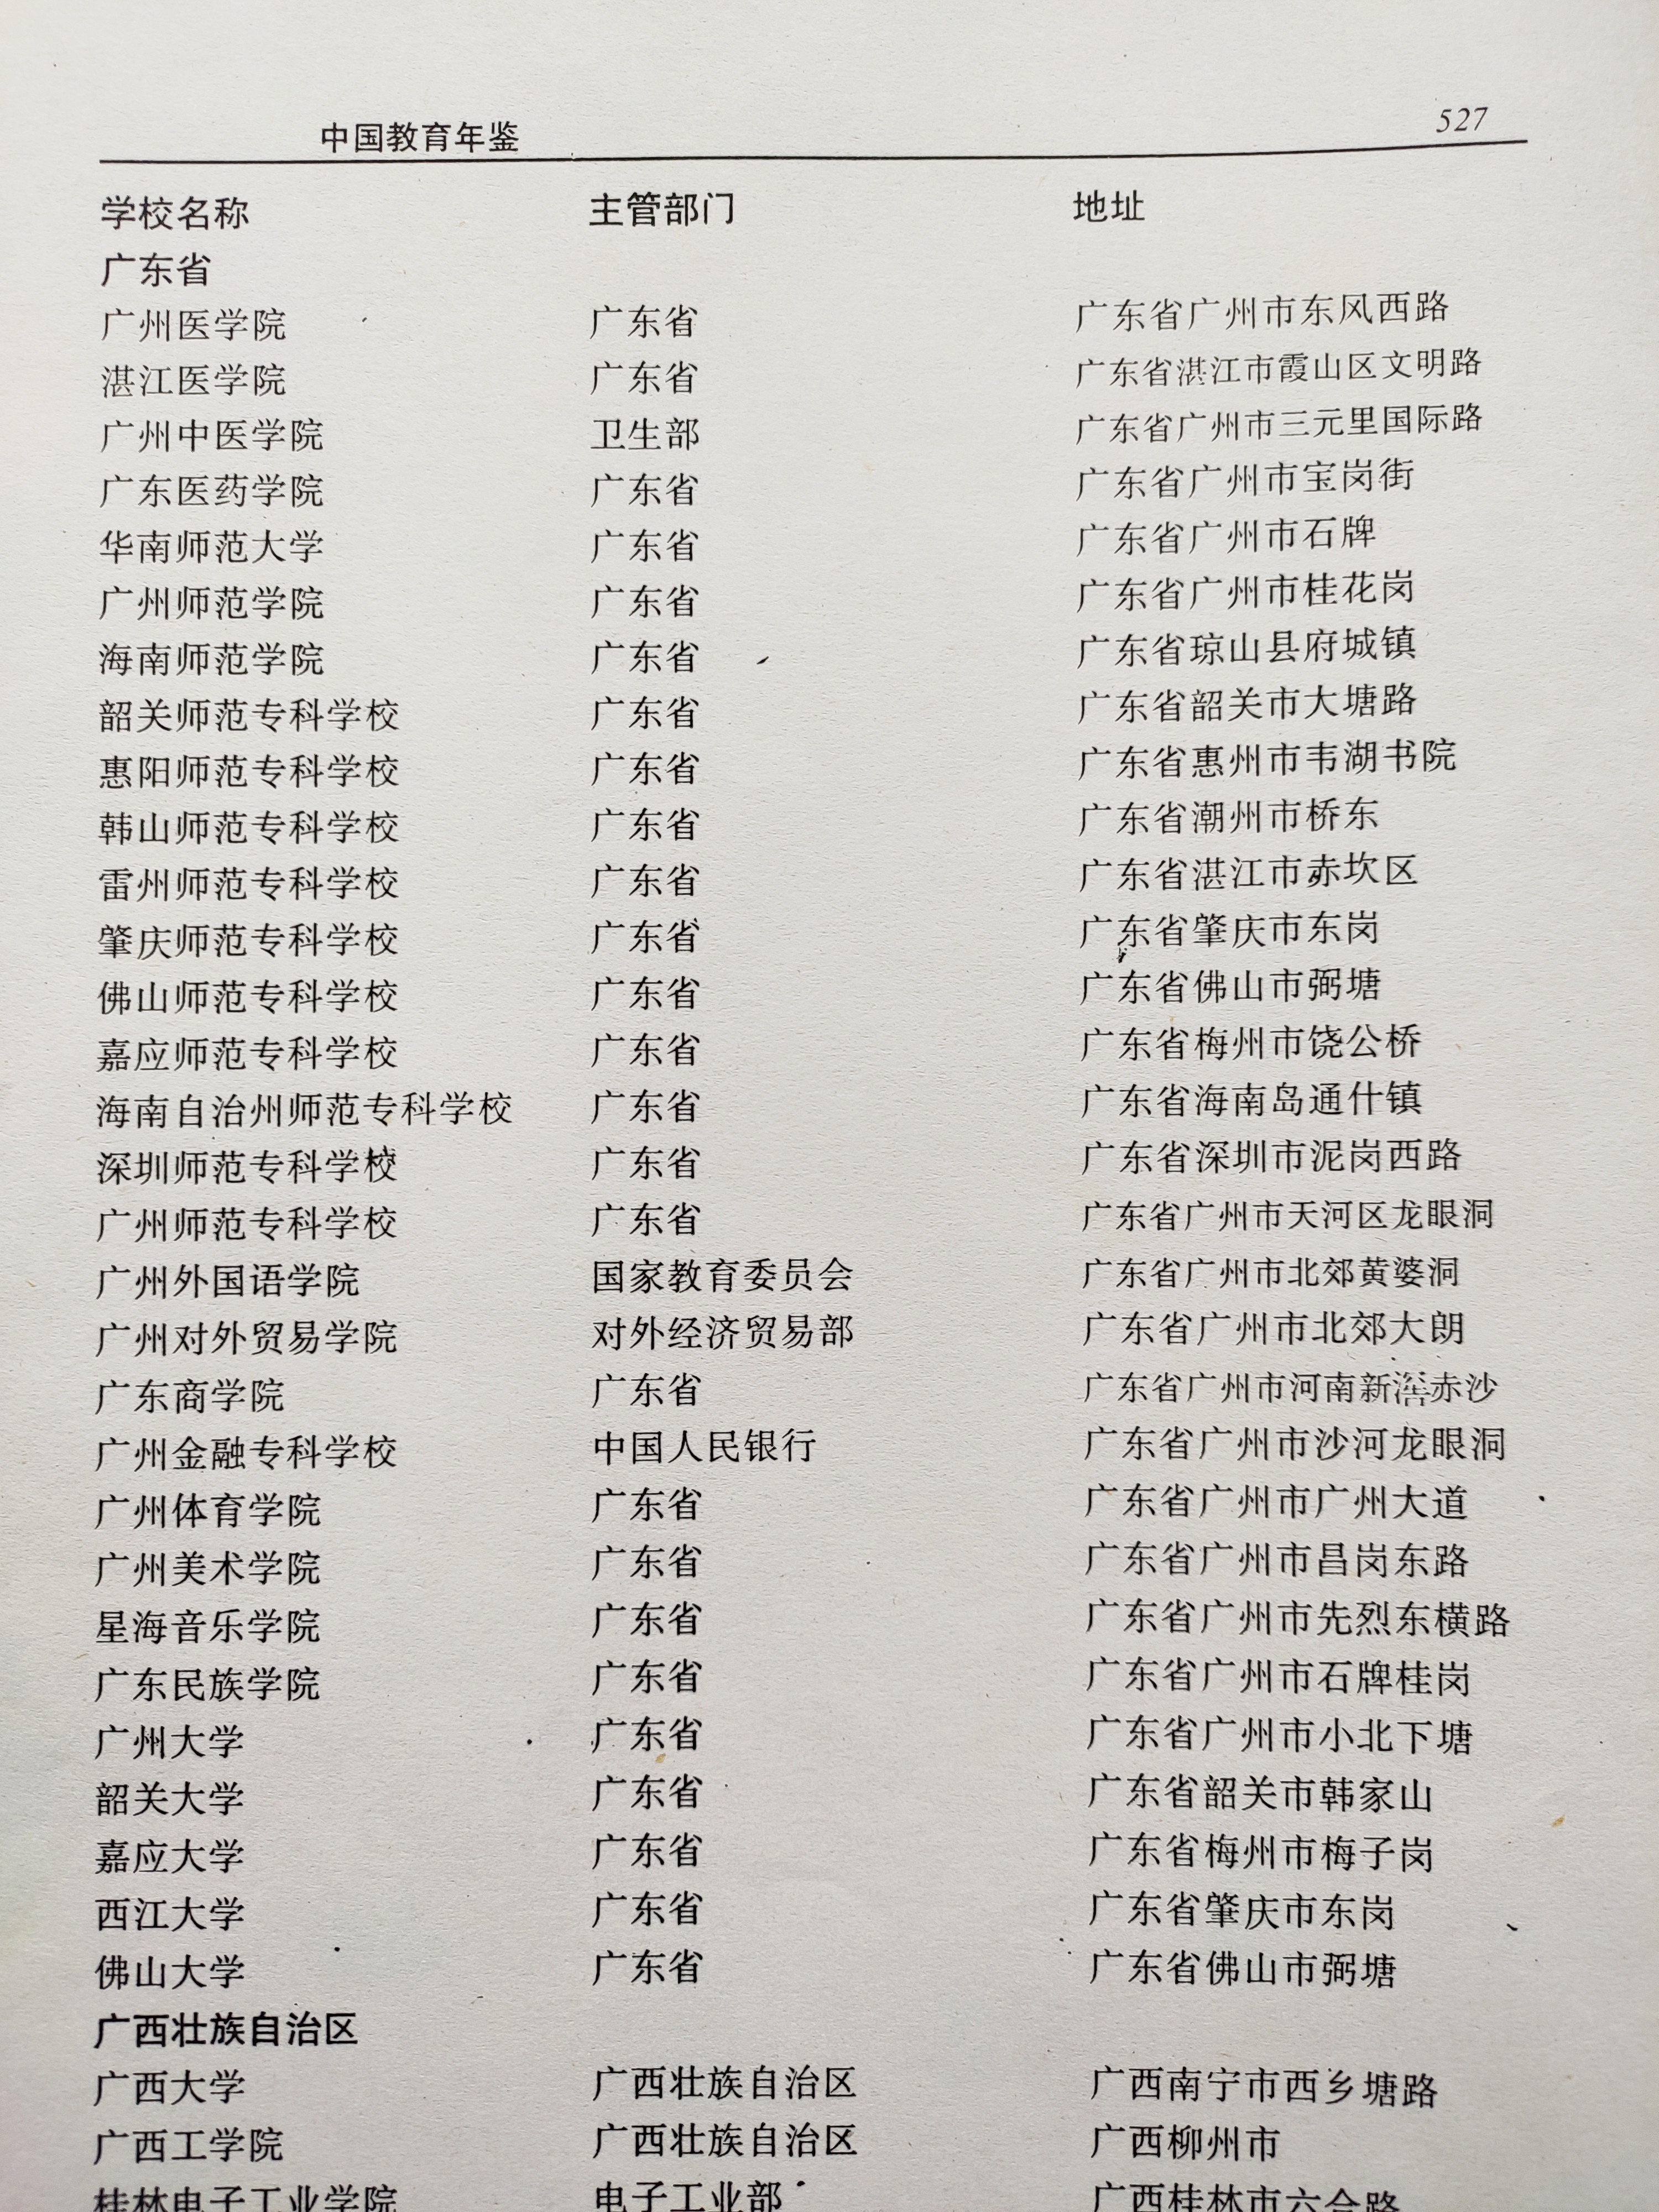 中国教育年鉴 527
学校名称 主管部门 地址
广东省
广州医学院 广东省 广东省广州市东风西路
湛江医学院 广东省 广东省湛江市霞山区文明路
广州中医学院 卫生部 广东省广州市三元里国际路
广东医药学院 广东省 广东省广州市宝岗街
华南师范大学 广东省 广东省广州市石牌
广州师范学院 广东省 广东省广州市桂花岗
海南师范学院 广东省 广东省琼山县府城镇
韶关师范专科学校 广东省 广东省韶关市大塘路
惠阳师范专科学校 广东省 广东省惠州市韦湖书院
韩山师范专科学校 广东省 广东省潮州市桥东
雷州师范专科学校 广东省 广东省湛江市赤坎区
肇庆师范专科学校 广东省 广东省肇庆市东岗
佛山师范专科学校 广东省 广东省佛山市弼塘
嘉应师范专科学校 广东省 广东省梅州市饶公桥
海南自治州师范专科学校 广东省 广东省海南岛通什镇
深圳师范专科学校 广东省 广东省深圳市泥岗西路
广州师范专科学校 广东省 广东省广州市天河区龙眼洞
广州外国语学院 国家教育委员会 广东省广州市北郊黄婆洞
广州对外贸易学院 对外经济贸易部 广东省广州市北郊大朗
广东商学院 广东省 广东省广州市河南新滘赤沙
广州金融专科学校 中国人民银行 广东省广州市沙河龙眼洞
广州体育学院 广东省 广东省广州市广州大道
广州美术学院 广东省 广东省广州市昌岗东路
星海音乐学院 广东省 广东省广州市先烈东横路
广东民族学院 广东省 广东省广州市石牌桂岗
广州大学 广东省 广东省广州市小北下塘
韶关大学 广东省 广东省韶关市韩家山
嘉应大学 广东省 广东省梅州市梅子岗
西江大学 广东省 广东省肇庆市东岗
佛山大学 广东省 广东省佛山市弼塘
广西壮族自治区
广西大学 广西壮族自治区 广西南宁市西乡塘路
广西工学院 广西壮族自治区 广西柳州市
桂林电子工业学院 电子工业部 广西桂林市六合路